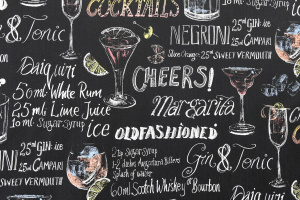 COCKTAILS
10 ml Sugar-Syrup
& Tonic
NEGRONI
25ml GIN
ice
25ml CAMPARI
Slice Orange 25ml SWEET VERMOUTH
Daiquiri
50ml White Rum
25 ml Lime Juice
10 ml Sugar-Syrup ice
CHEERS!
Margarita
OLDFASHIONED
25ml GIN
ice
25ml CAMPARI
SWEET VERMOUTH
2 tsp Sugar-Syrup
1-2 dashes Angostura Bitters
Splash of water
60ml Scotch Whiskey or Bourbon
Gin & Tonic
NEGRONI
25ml SWEET VERMOUTH